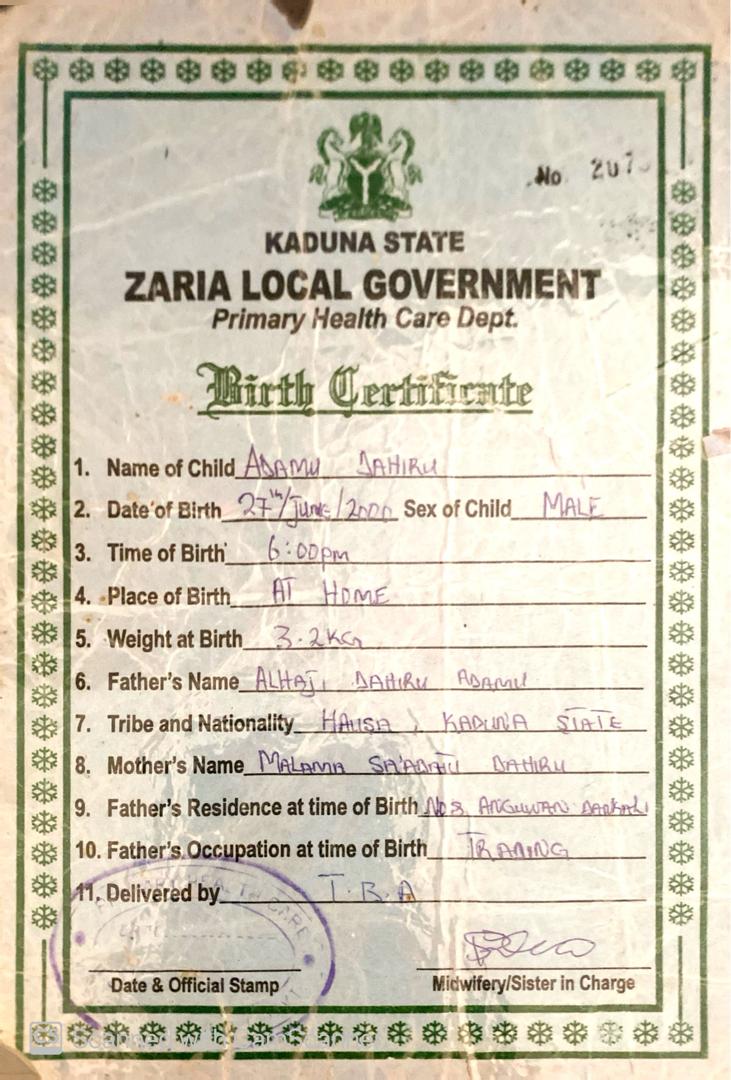 No. 207
KADUNA STATE
ZARIA LOCAL GOVERNMENT
Primary Health Care Dept.
Birth Certificate
1. Name of Child ADAMU DAHIRU
2. Date of Birth 27th/June/2000 Sex of Child MALE
3. Time of Birth 6:00pm
4. Place of Birth AT HOME
5. Weight at Birth 3.2KG
6. Father's Name ALHAJI DAHIRU ADAMU
7. Tribe and Nationality HAUSA, KADUNA STATE
8. Mother's Name MALAMA SA'ADATU DAHIRU
9. Father's Residence at time of Birth ANGUWAN
10. Father's Occupation at time of Birth TRANING
11. Delivered by T.B.A
HEALTH CARE
Date & Official Stamp Midwifery/Sister in Charge
Scanned with CamScanner